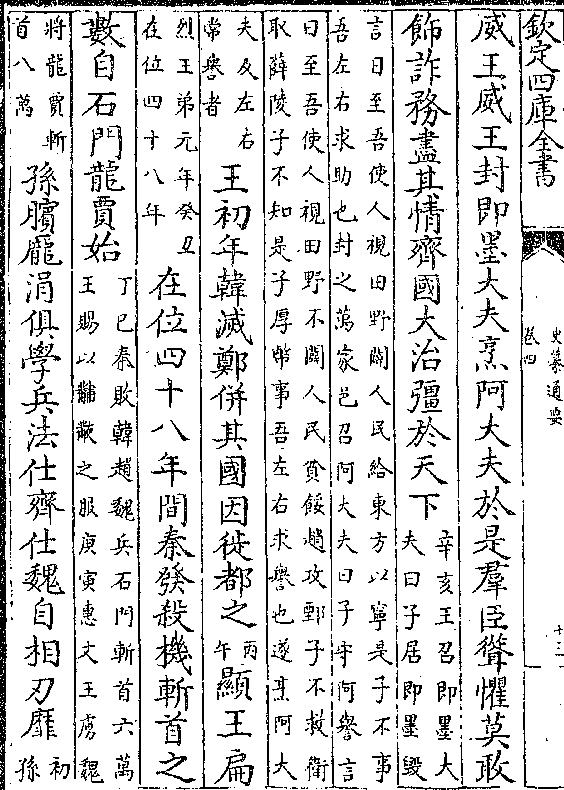 欽定四庫全書
史纂通要
卷四
十三
威王威王封即墨大夫烹阿大夫於是羣臣聳懼莫敢
飾詐務盡其情齊國大治彊於天下
辛亥王召即墨大
夫曰子居即墨毀
言日至吾使人視田野闢人民給東方以寧是子不事
吾左右求助也封之萬家邑召阿大夫曰子守阿譽言
日至吾使人視田野不闢人民貧餒趙攻鄄子不救衛
取薛陵子不知是子厚幣事吾左右求譽也遂烹阿大
夫及左右
常譽者
王初年韓滅鄭併其國因徙都之
丙
午
顯王扁
烈王弟元年癸丑
在位四十八年
在位四十八年間秦發殺機斬首之
數自石門龍賈始
丁巳秦敗韓趙魏兵石門斬首六萬
王賜以黼黻之服庚寅惠文王虜魏
將龍賈斬
首八萬
孫臏龐涓俱學兵法仕齊仕魏自相刃靡
初
孫